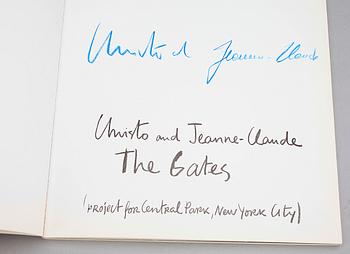 Christo and Jeanne-Claude
Christo and Jeanne-Claude
The Gates
(PROJECT for CENTRAL PARK, NEW YORK CITY)